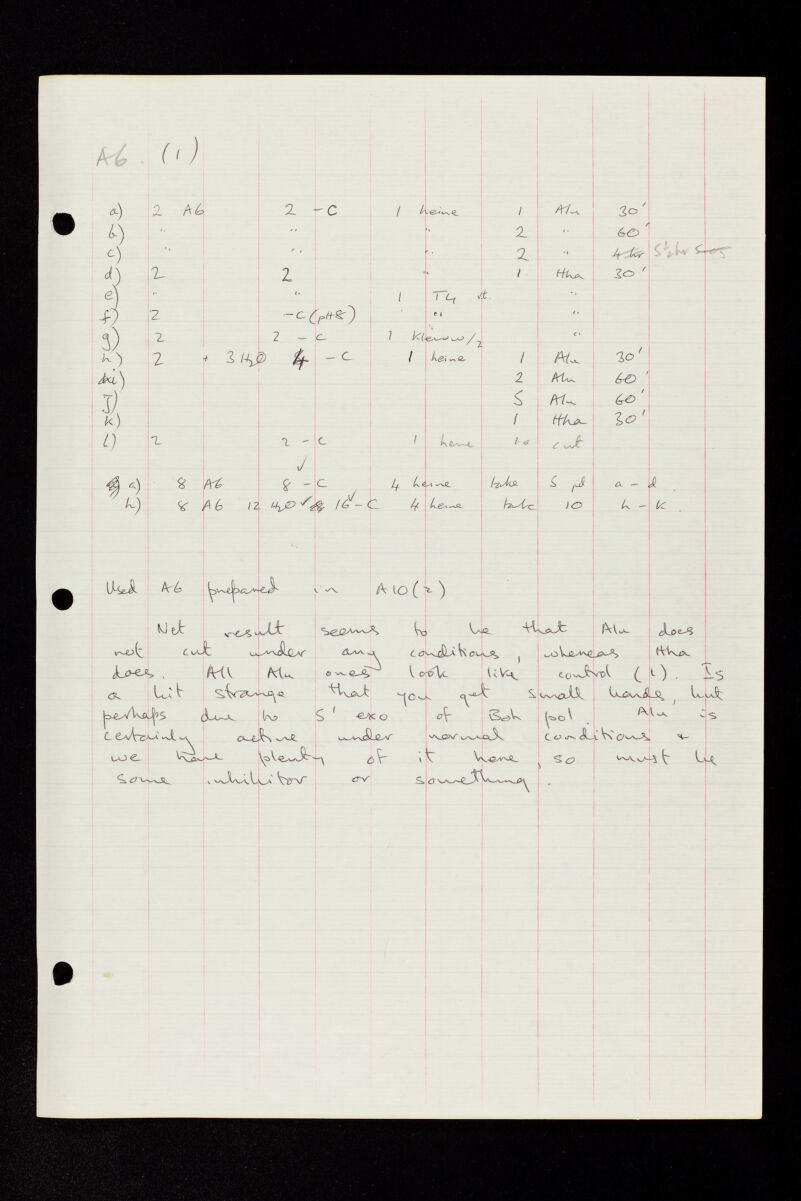 A6. (1)
a) 2 A6 2 -C 1 heine 1 Alu 30'
b) " " " 2 " 60'
c) " " " 2 " 4 hr 5½ hr
d) 2 2 " 1 Hha 30'
e) " " 1 T4 "
f) 2 -C (pH8) " "
g) 2 2 -C 1 Klenow/2 "
h) 2 + 3 H2O 4 -C 1 heine 1 Alu 30'
i) 2 Alu 60'
j) 5 Alu 60'
k) 1 Hha 30'
l) 2 2 -C 1 heine no cut
a) 8 A6 8 -C 4 heine take 5 µl a - d.
h) 8 A6 12 H2O ✓ 16 ✓ -C 4 heine take 10 h - k.
Used A6 prepared in A10(2)
Net result seems to be that Alu does
not cut under any conditions, whereas Hha
does. All Alu ones look like control (l). Is
a bit strange that you get small bands, but
perhaps due to 5' exo of Boh pol. Alu is
certainly active under normal conditions &
we have plenty of it here, so must be
some inhibitor or something.